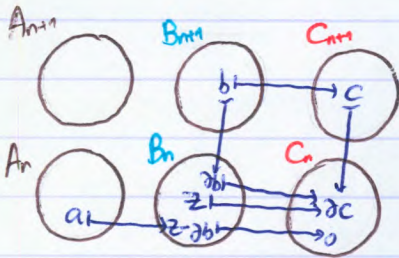 Aₙ₊₁ Bₙ₊₁ Cₙ₊₁
b c
Aₙ Bₙ Cₙ
∂b
z ∂c
a z-∂b 0